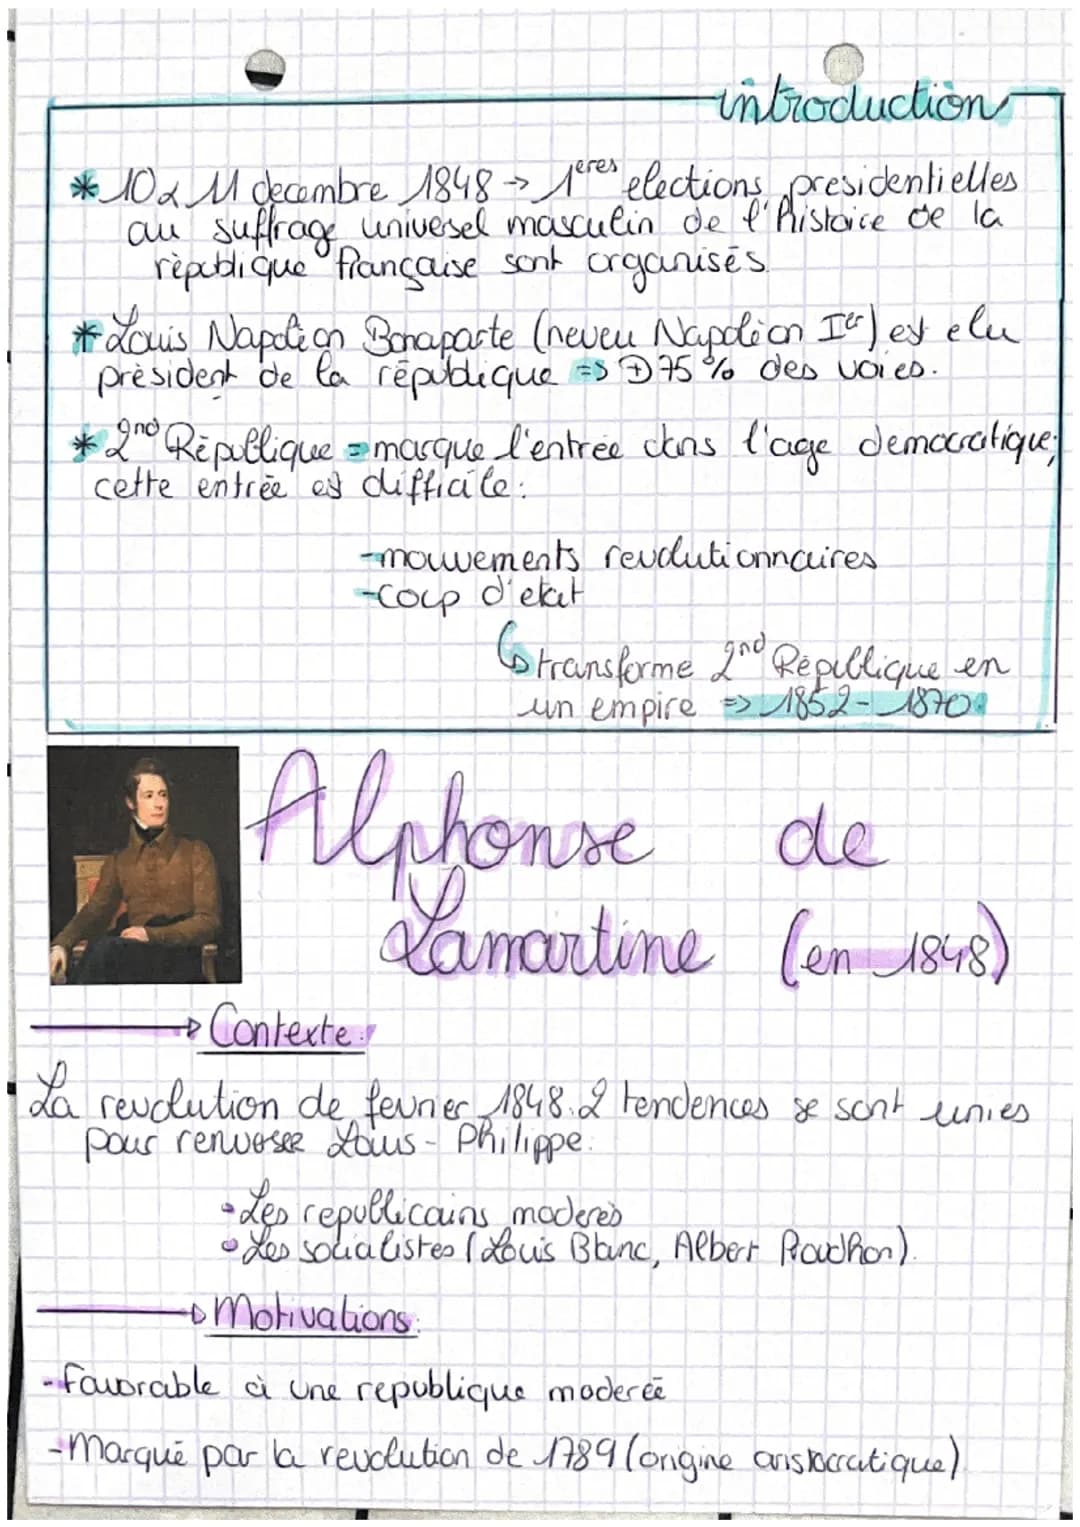 introduction
* 10 & 11 decembre 1848 → 1ères elections presidentielles
au suffrage universel masculin de l'histoire de la
rèpublique française sont organisés.
* Louis Napolèon Bonaparte (neveu Napolèon Ier) est elu
prèsident de la rèpublique => ⊕ 75 % des voies.
* 2nd Rèpublique = marque l'entrée dans l'age democratique;
cette entrée est difficile:
- mouvements revolutionnaires
- coup d'etat
↳ transforme 2nd Republique en
un empire => 1852 - 1870.
Alphonse de
Lamartine (en 1848)
→ Contexte:
La revolution de fevrier 1848. 2 tendences se sont unies
pour renverser Louis-Philippe.
• Les republicains moderés
• Les socialistes (Louis Blanc, Albert Proudhon).
→ Motivations:
- Favorable à une republique moderée
- Marqué par la revolution de 1789 (origine aristocratique).